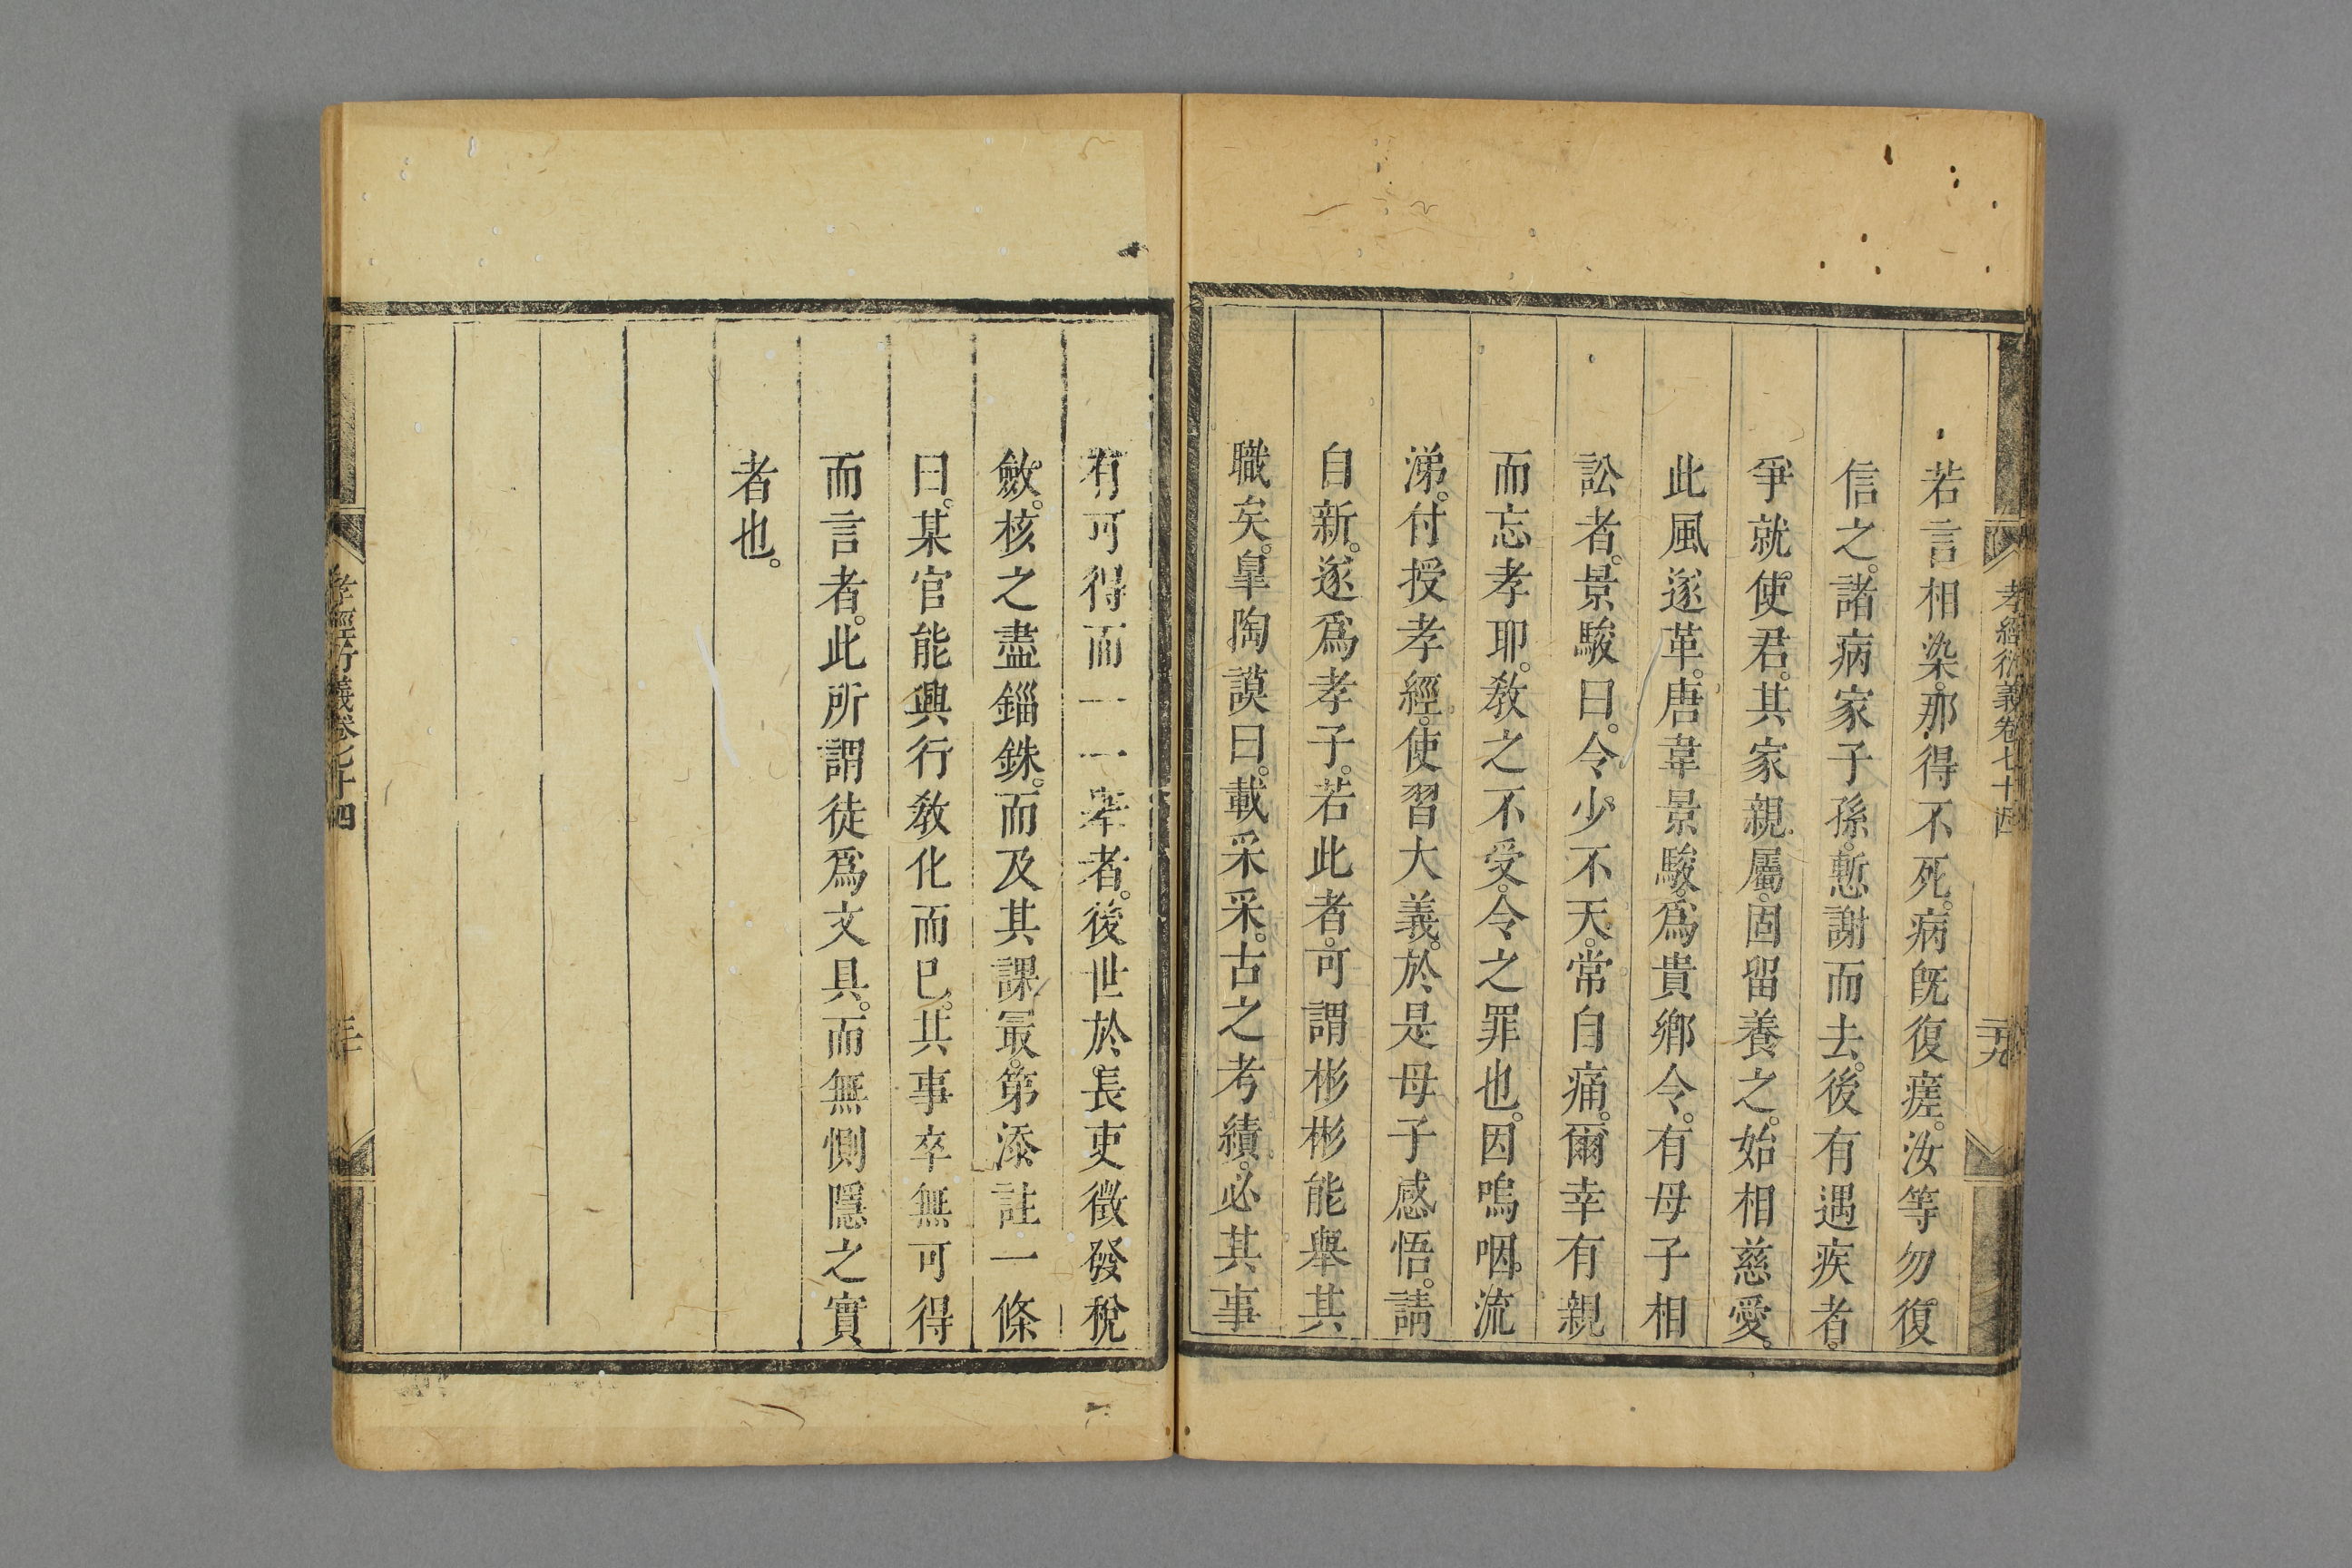 孝經衍義卷七十四
二十九
若言相染。那得不死。病旣復瘥。汝等勿復
信之。諸病家子孫。慙謝而去。後有遇疾者。
爭就使君。其家親屬。固留養之。始相慈愛。
此風遂革。唐韋景駿爲貴鄉令。有母子相
訟者。景駿曰。令少不天。常自痛。爾幸有親
而忘孝耶。敎之不受。令之罪也。因嗚咽。流
涕。付授孝經。使習大義。於是母子感悟。請
自新。遂爲孝子。若此者。可謂彬彬能舉其
職矣。臯陶謨曰。載采采。古之考績。必其事
有可得而一一舉者。後世於長吏徵發稅
斂。核之盡錙銖。而及其課最。第添註一條
曰。某官能興行敎化而已。其事卒無可得
而言者。此所謂徒爲文具。而無惻隱之實
者也。
孝經衍義卷七十四
三十